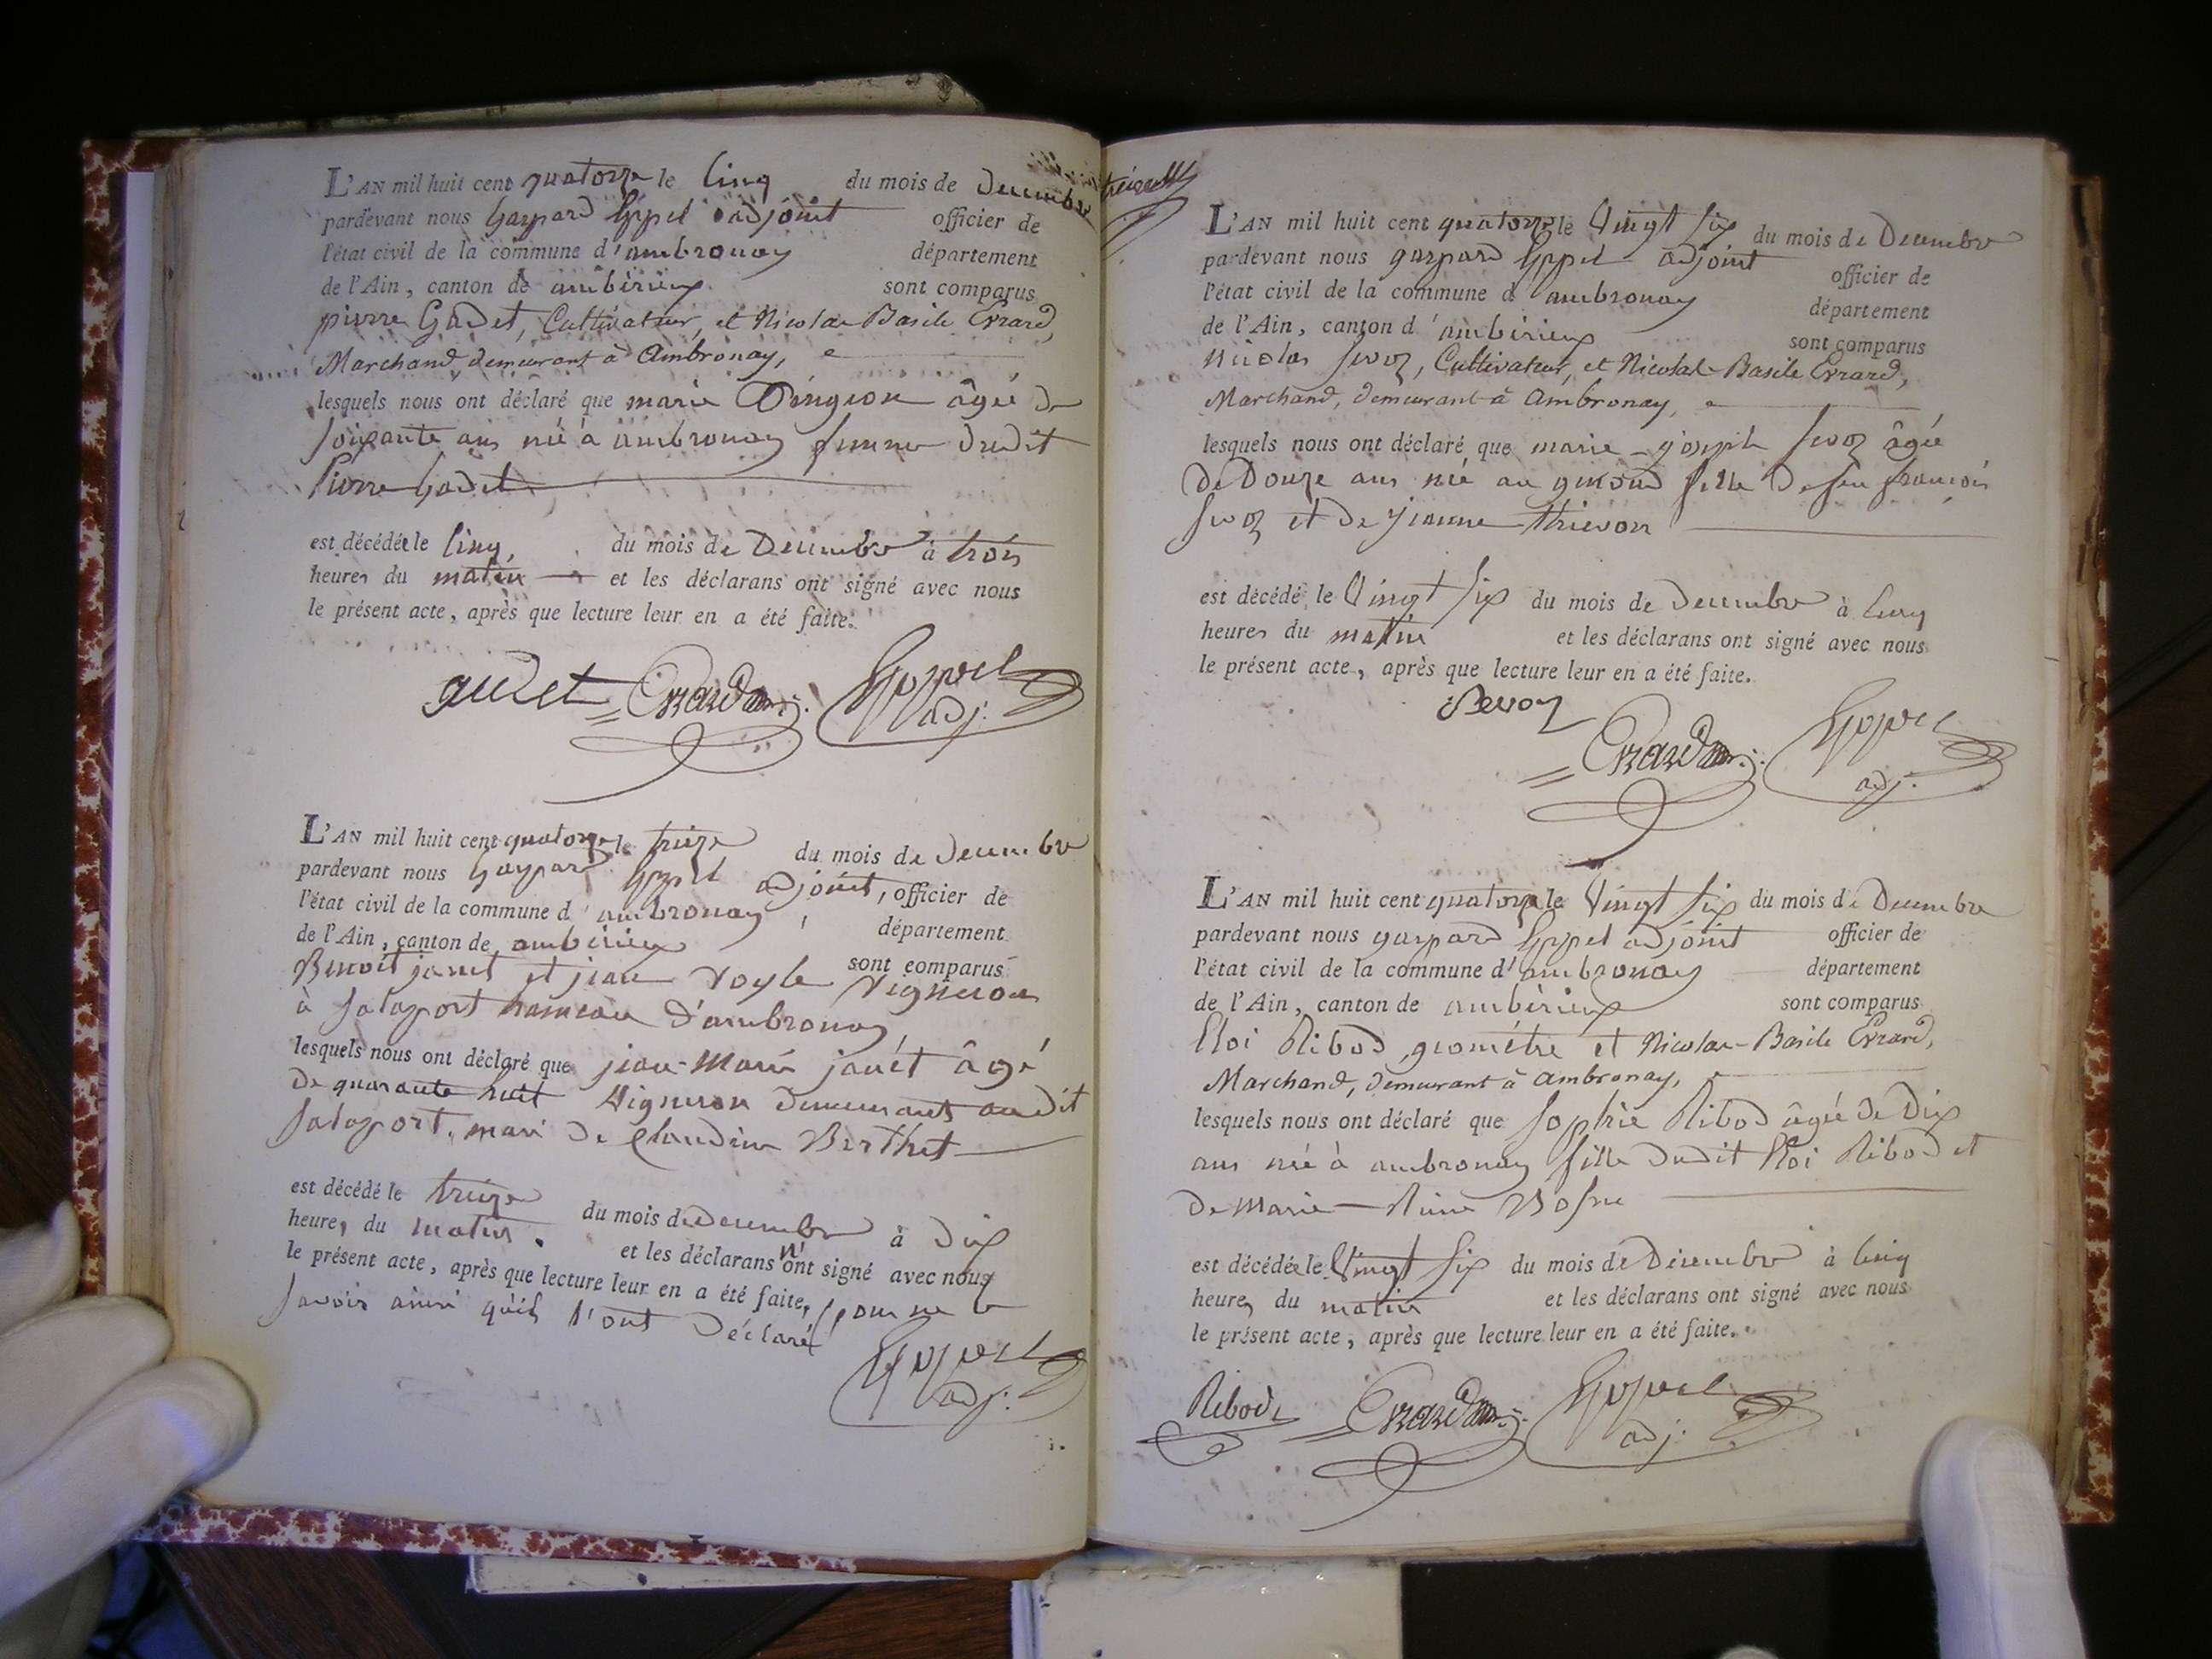 L'AN mil huit cent quatorze le cinq du mois de decembre
pardevant nous gaspard Eppel adjoint officier de
l'état civil de la commune d'ambronay département
de l'Ain, canton de ambérieux sont comparus
pierre Gadet, Cultivateur, et Nicolas Basile Evrard,
Marchand, demeurant à Ambronay,
lesquels nous ont déclaré que marie âgée de
soixante ans née à ambronay femme dudit
Pierre Gadet
est décédée le cinq, du mois de Decembre à trois
heures du matin et les déclarans ont signé avec nous
le présent acte, après que lecture leur en a été faite.
gudet Evrard Eppel
adj.
L'AN mil huit cent quatorze le treize du mois de decembre
pardevant nous Gaspard Eppel adjoint, officier de
l'état civil de la commune d'ambronay département
de l'Ain, canton de ambérieux sont comparus
Benoit janet et jean Vignerons
à salaport hameau d'ambronay
lesquels nous ont déclaré que jean-Marie janet âgé
de quarante huit Vigneron demeurant audit
salaport, mari de Claudine Berthet
est décédé le treize du mois de decembre à dix
heures du matin. et les déclarans n'ont signé avec nous
le présent acte, après que lecture leur en a été faite, pour ne le
savoir ainsi qu'ils l'ont déclaré
Eppel
adj.
L'AN mil huit cent quatorze le Vingt six du mois de Decembre
pardevant nous gaspard Eppel adjoint officier de
l'état civil de la commune d'ambronay département
de l'Ain, canton d'ambérieux sont comparus
Nicolas Sevoz, Cultivateur, et Nicolas-Basile Evrard,
Marchand, demeurant à Ambronay,
lesquels nous ont déclaré que marie-joseph Sevoz âgée
de Douze ans née au fille de feu françois
Sevoz et de jeanne Thievon
est décédé le Vingt six du mois de decembre à cinq
heures du matin et les déclarans ont signé avec nous
le présent acte, après que lecture leur en a été faite.
Sevoz
Evrard Eppel
adj.
L'AN mil huit cent quatorze le Vingt six du mois de Decembre
pardevant nous gaspard Eppel adjoint officier de
l'état civil de la commune d'ambronay département
de l'Ain, canton de ambérieux sont comparus
Eloi Ribod géomètre et Nicolas-Basile Evrard,
Marchand, demeurant à Ambronay,
lesquels nous ont déclaré que Sophie Ribod âgée de Dix
ans née à ambronay fille dudit Eloi Ribod et
de Marie
est décédée le Vingt six du mois de Decembre à cinq
heures du matin et les déclarans ont signé avec nous
le présent acte, après que lecture leur en a été faite.
Ribod Evrard Eppel
adj.